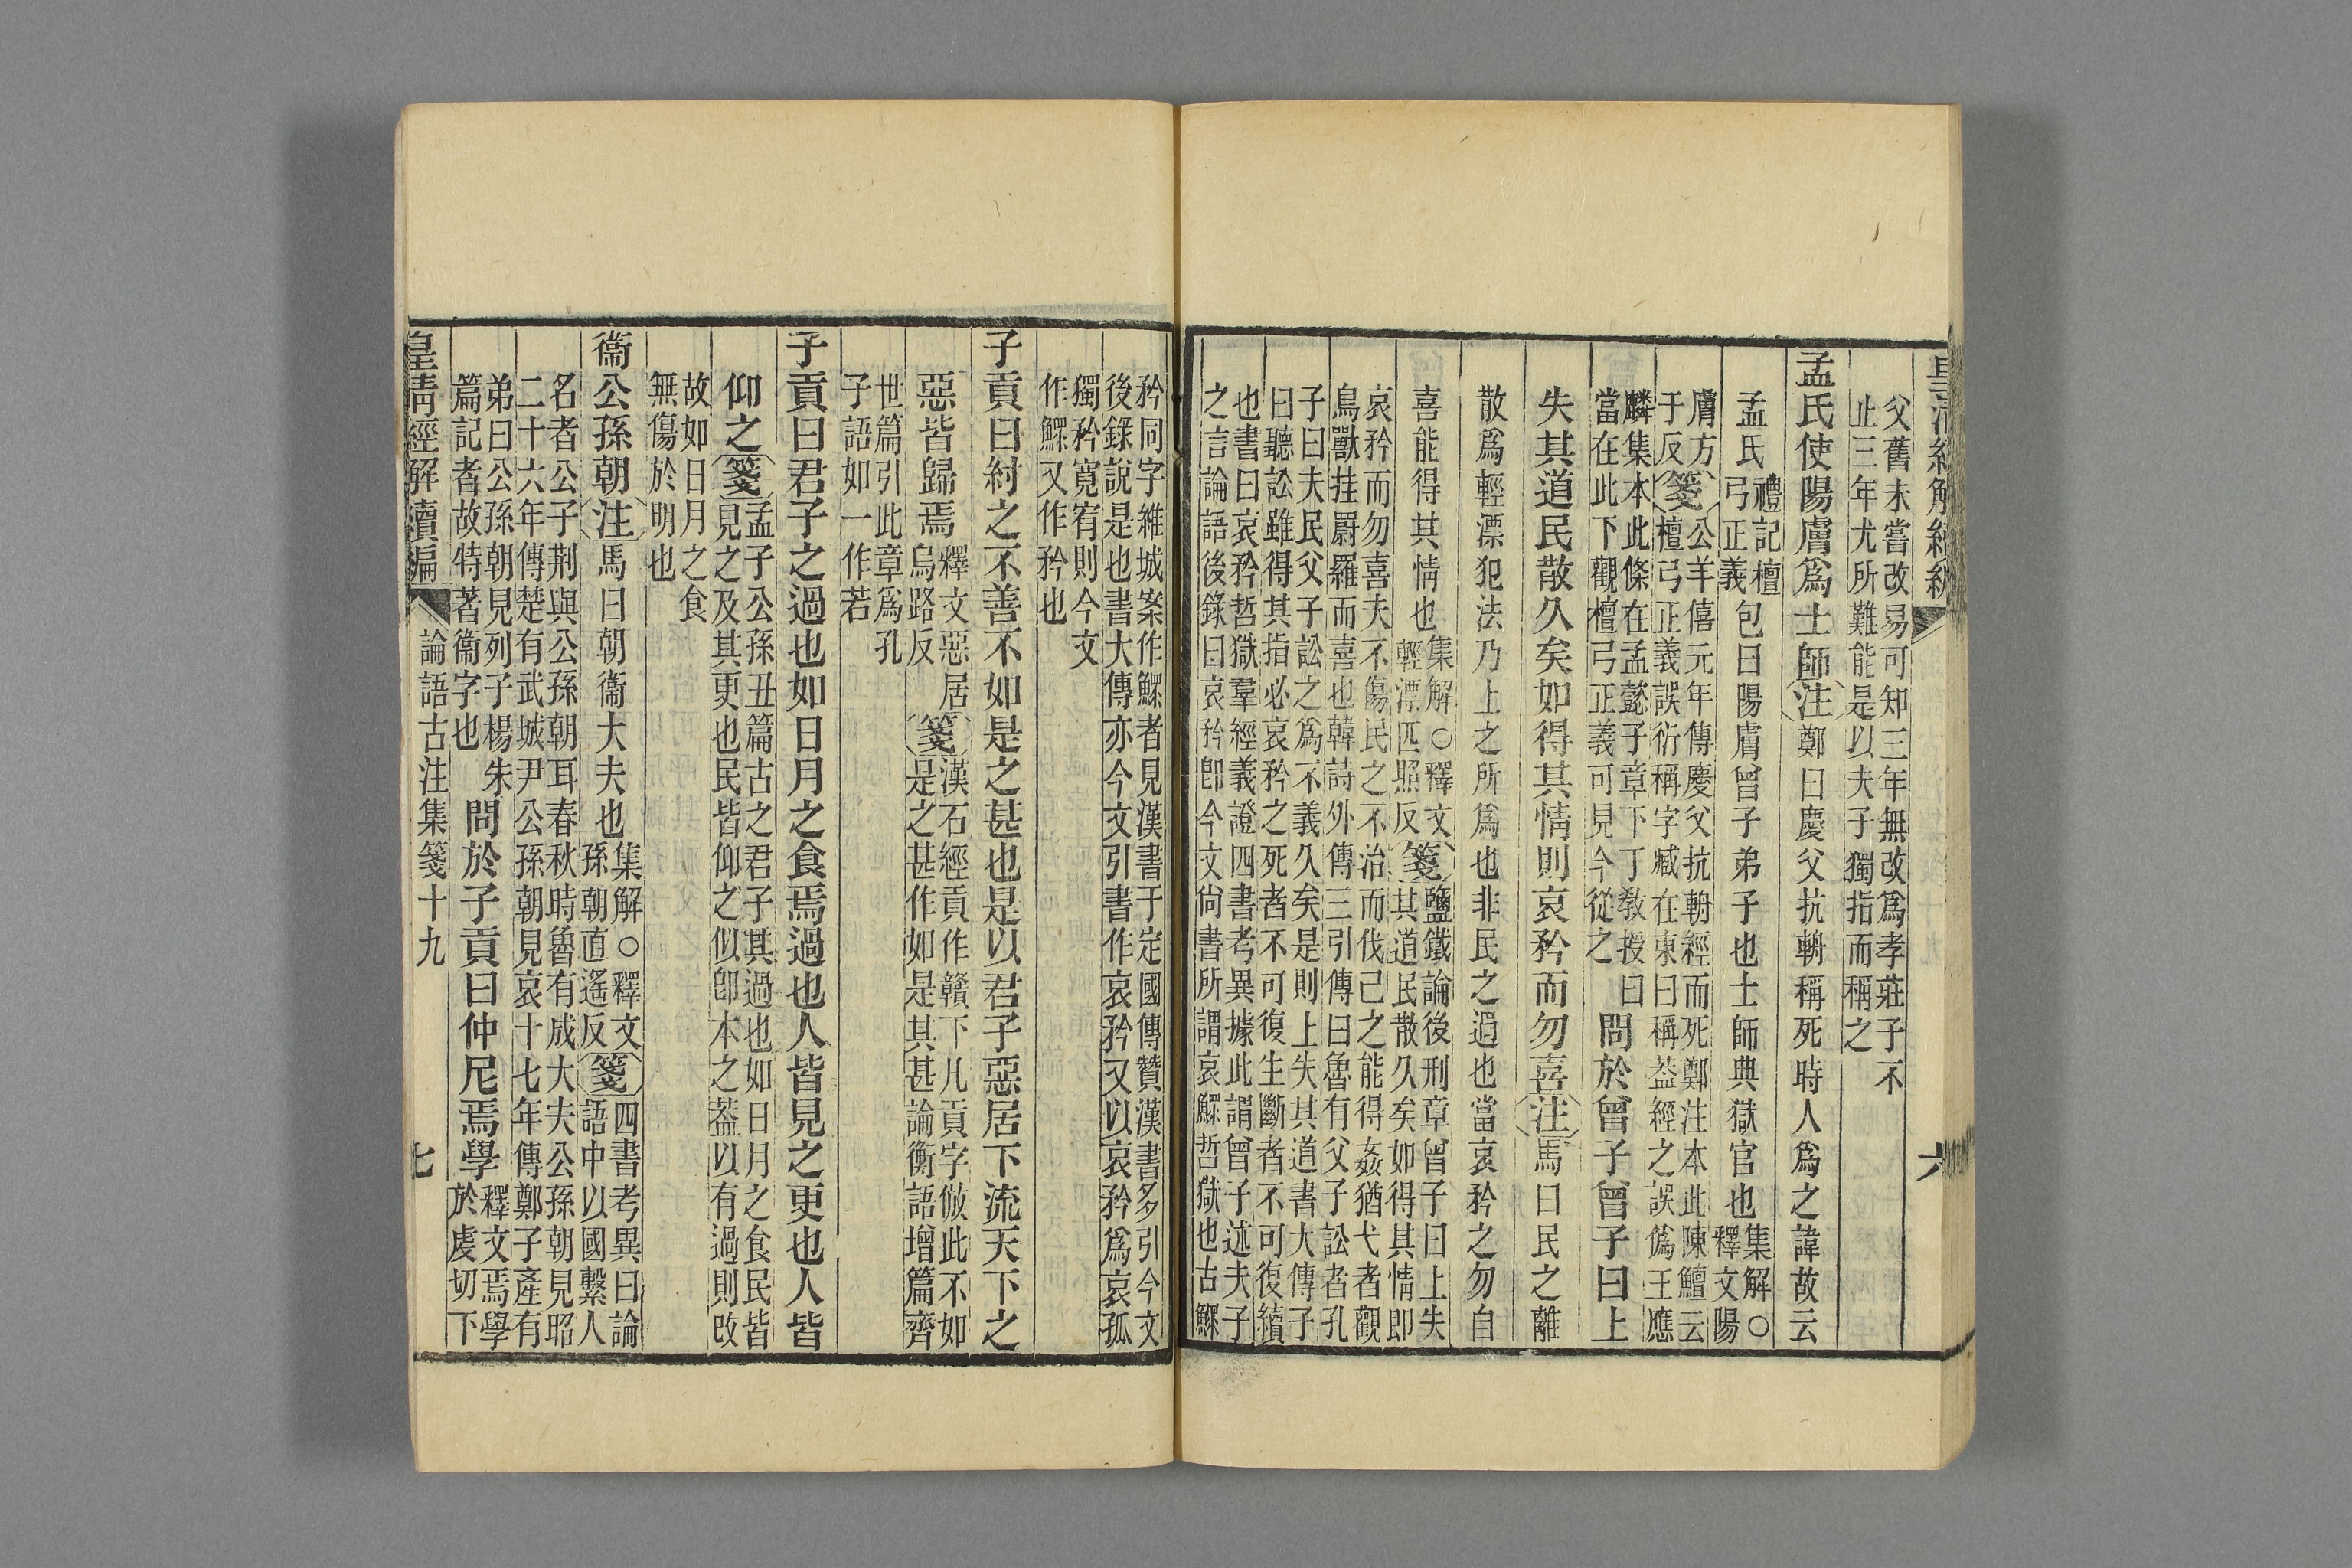 皇清經解續編 六
父舊未嘗改易可知三年無改爲孝莊子不
止三年尤所難能是以夫子獨指而稱之
孟氏使陽膚爲士師注鄭曰慶父抗輈稱死時人爲之諱故云
孟氏禮記檀弓正義包曰陽膚曾子弟子也士師典獄官也集解○釋文陽
膚方于反箋公羊僖元年傳慶父抗輈經而死鄭注本此陳鱣云檀弓正義誤衍稱字臧在東曰稱葢經之誤僞王應
麟集本此條在孟懿子章下丁敎授曰當在此下觀檀弓正義可見今從之問於曾子曾子曰上
失其道民散久矣如得其情則哀矜而勿喜注馬曰民之離
散爲輕漂犯法乃上之所爲也非民之過也當哀矜之勿自
喜能得其情也集解○釋文輕漂匹照反箋鹽鐵論後刑章曾子曰上失其道民散久矣如得其情即
哀矜而勿喜夫不傷民之不治而伐己之能得姦猶弋者觀
鳥獸挂罻羅而喜也韓詩外傳三引傳曰魯有父子訟者孔
子曰夫民父子訟之爲不義久矣是則上失其道書大傳子
曰聽訟雖得其指必哀矜之死者不可復生斷者不可復續
也書曰哀矜哲獄羣經義證四書考異據此謂曾子述夫子
之言論語後錄曰哀矜卽今文尙書所謂哀鰥哲獄也古鰥
矜同字維城案作鰥者見漢書于定國傳贊漢書多引今文
後錄說是也書大傳亦今文引書作哀矜又以哀矜爲哀孤
獨矜寬宥則今文
作鰥又作矜也
子貢曰紂之不善不如是之甚也是以君子惡居下流天下之
惡皆歸焉釋文惡居烏路反箋漢石經貢作贛下凡貢字倣此不如是之甚作如是其甚論衡語增篇齊
世篇引此章爲孔
子語如一作若
子貢曰君子之過也如日月之食焉過也人皆見之更也人皆
仰之箋孟子公孫丑篇古之君子其過也如日月之食民皆見之及其更也民皆仰之似卽本之葢以有過則改
故如日月之食
無傷於明也
衞公孫朝注馬曰朝衞大夫也集解○釋文孫朝直遙反箋四書考異曰論語中以國繫人
名者公子荆與公孫朝耳春秋時魯有成大夫公孫朝見昭
二十六年傳楚有武城尹公孫朝見哀十七年傳鄭子產有
弟曰公孫朝見列子楊朱篇記者故特著衞字也問於子貢曰仲尼焉學釋文焉學於虔切下
皇淸經解續編 論語古注集箋十九 七